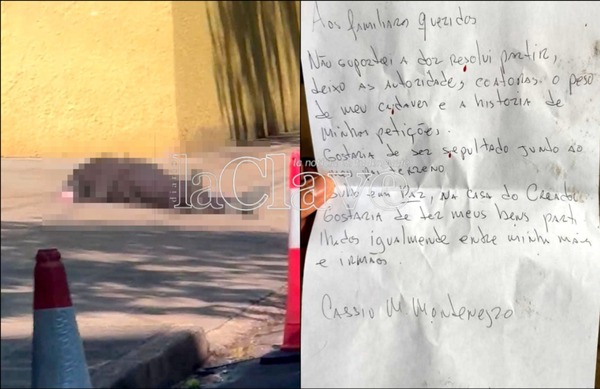 Aos familiares queridos
Não suportei a dor resolvi partir,
deixo as autoridades, contorias o peso
de meu cadaver e a historia de
minhas petições.
Gostaria de ser sepultado junto ao
meu pai terreno
em Paz, na casa do Creador
Gostaria de ter meus bens part
lhados igualmente entre minha mãe
e irmãos.
Cassiu M Montenegro
laClave